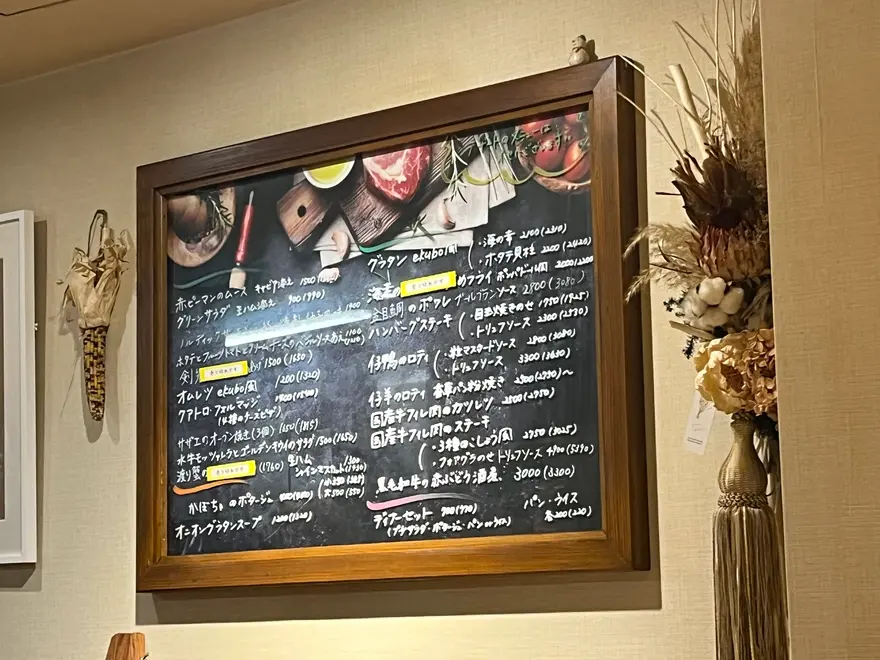 赤ピーマンのムース キャビア添え 1500
グリーンサラダ 生ハム添え 900(990)
ノルディックサ
ホタテとフルーツトマトとクリームチーズの
剣 1500(1650)
オムレツ ekubo風 1200(1320)
クアトロ・フォルマッジ 1400(1540)
(4種のチーズピザ)
サザエのオーブン焼き(3個) 1650(1815)
水牛モッツァレラとゴールデンキウイのサラダ 1500(1650)
渡り蟹の (1760)
生ハム 1300
シャインマスカット(1430)
かぼちゃのポタージュ
オニオングラタンスープ 1200(1320)
グラタン ekubo風
・海の幸 2100(2310)
・ホタテ貝柱 2200(2420)
海老の
フライ
金目鯛のポワレ ブールブランソース 2800(3080)
ハンバーグステーキ
・目玉焼きのせ 1750(1925)
・トリュフソース 2300(2530)
仔鴨のロティ
・粒マスタードソース 2800(3080)
・トリュフソース 3300(3630)
仔羊のロティ 香草パン粉焼き
国産牛フィレ肉のカツレツ 2500(2750)
国産牛フィレ肉のステーキ
・3種のこしょう風 2750(3025)
・フォアグラのせ トリュフソース 4900(5390)
黒毛和牛の赤ぶどう酒煮 3000(3300)
ディナーセット 700(770)
(プチサラダ・ポタージュ・パン or ライス)
パン・ライス
各200(220)